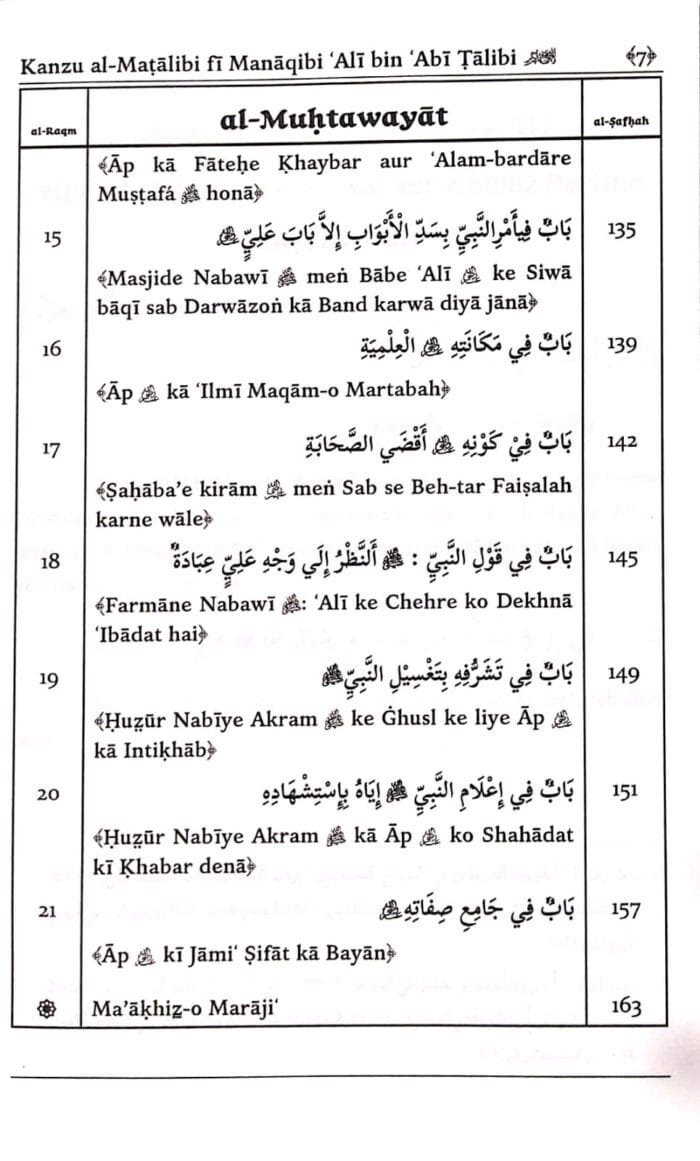 Kanzu al-Maṭālibi fī Manāqibi ‘Alī bin ‘Abī Ṭālibi ﴾7﴿
al-Raqm al-Muḥtawayāt al-Ṣafḥah
﴾Āp kā Fāteḥe Ḳhaybar aur ‘Alam-bardāre
Muṣṭafá ﷺ honā﴿
15 بَابٌ فِيأَمْرِالنَّبِيِّ بِسَدِّ الْأَبْوَابِ إِلاَّ بَابَ عَلِيٍّ 135
﴾Masjide Nabawī ﷺ meṅ Bābe ‘Alī ke Siwā
bāqī sab Darwāzoṅ kā Band karwā diyā jānā﴿
16 بَابٌ فِي مَكَانَتِهِ الْعِلْمِيَةِ 139
﴾Āp kā ‘Ilmī Maqām-o Martabah﴿
17 بَابٌ فِيْ كَوْنِهِ أَقْضَي الصَّحَابَةِ 142
﴾Ṣaḥāba’e kirām meṅ Sab se Beh-tar Faiṣalah
karne wāle﴿
18 بَابٌ فِي قَوْلِ النَّبِيِّ : ﷺ أَلنَّظْرُ إِلَي وَجْهِ عَلِيٍّ عِبَادَةٌ 145
﴾Farmāne Nabawī ﷺ: ‘Alī ke Chehre ko Dekhnā
‘Ibādat hai﴿
19 بَابٌ فِي تَشَرُّفِهِ بِتَغْسِيْلِ النَّبِيِّ ﷺ 149
﴾Ḥuẓūr Nabīye Akram ﷺ ke Ġhusl ke liye Āp
kā Intiḳhāb﴿
20 بَابٌ فِي إِعْلَامِ النَّبِيِّ ﷺ إِيَاهُ بِإِسْتِشْهَادِهِ 151
﴾Ḥuẓūr Nabīye Akram ﷺ kā Āp ko Shahādat
kī Ḳhabar denā﴿
21 بَابٌ فِي جَامِعِ صِفَاتِهِ 157
﴾Āp kī Jāmi‘ Ṣifāt kā Bayān﴿
Ma’āḳhiẕ-o Marāji‘ 163